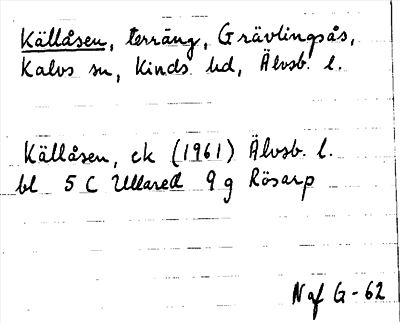 Källåsen, terräng, Grävlingsås,
Kalvs sn, Kinds hd, Älvsb. l.
Källåsen, ek (1961) Älvsb. l.
bl 5 C Ullared 9 g Rösarp
Naf G-62